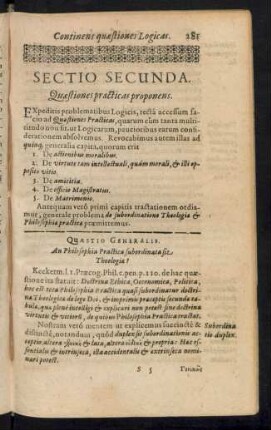 Continens quæstiones Logicas. 281
SECTIO SECUNDA.
Quæstiones practicas proponens.
EXpeditis problematibus Logicis, rectà accessum fa-
cio ad Quæstiones Practicas, quarum cum tanta multi-
tudo non sit ut Logicarum, paucioribus earum consi-
derationem absolvemus. Revocabimus autem illas ad
quinq; generalia capita, quorum erit
1. De actionibus moralibus.
2. De virtute tam intellectuali, quàm morali, & isti op-
posito vitio.
3. De amicitia.
4. De officio Magistratus.
5. De Matrimonio.
Antequam verò primi capitis tractationem ordia-
mur, generale problema de subordinatione Theologiæ &
Philosophiæ practicæ præmittemus.
QUÆSTIO GENERALIS.
An Philosophia Practica subordinata sit
Theologiæ?
Keckerm. l. 1. Præcog. Phil. c. pen. p. 210. de hac quæ-
stione ita statuit: Doctrina Ethica, Oeconomica, Politica,
hoc est tota Philosophia practica quasi subordinatur doctri-
næ Theologicæ de lege Dei, & imprimis præceptis secundæ ta-
bulæ, quæ plenè intelligi & explicari non potest sine doctrina
virtutis & vitiorum, de quibus Philosophia Practica tractat.
Nostram verò mentem ut explicemus succinctè &
distinctè, notandum, quod duplex sit subordinationis ac-
ceptio, altera
altera
sentialis & intrinseca, illa accidentalis & externa nomi-
nari potest.
Subordina-
tio duplex.
S 5